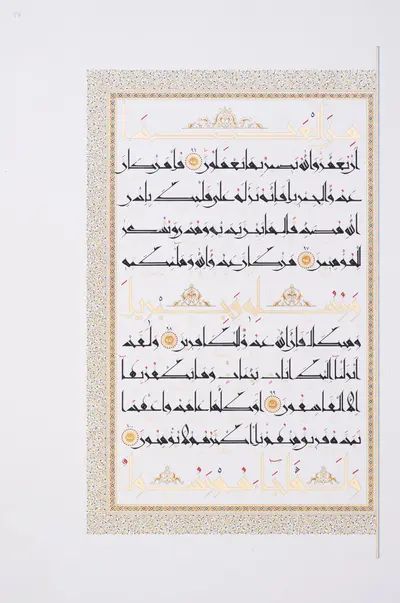 من العذاب
أن يعمر والله بصير بما يعملون قل من كان
عدوا لجبريل فإنه نزله على قلبك بإذن
الله مصدقا لما بين يديه وهدى وبشرى
للمؤمنين من كان عدوا لله وملائكته
ورسله وجبريل
وميكال فإن الله عدو للكافرين ولقد
أنزلنا إليك آيات بينات وما يكفر بها
إلا الفاسقون أوكلما عاهدوا عهدا
نبذه فريق منهم بل أكثرهم لا يؤمنون